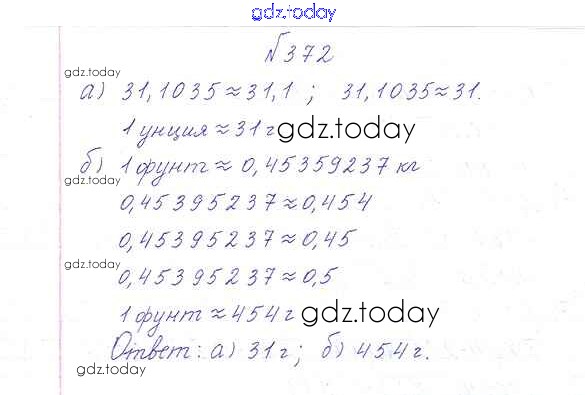 gdz.today
№372
gdz.today
а) 31,1035≈31,1 ; 31,1035≈31.
1 унция≈31 г gdz.today
б) 1 фунт≈ 0,45359237 кг
gdz.today
0,45395237≈0,454
0,45395237≈0,45
gdz.today
0,45395237≈0,5
1 фунт≈454 г gdz.today
Ответ: а) 31 г; б) 454 г.
gdz.today